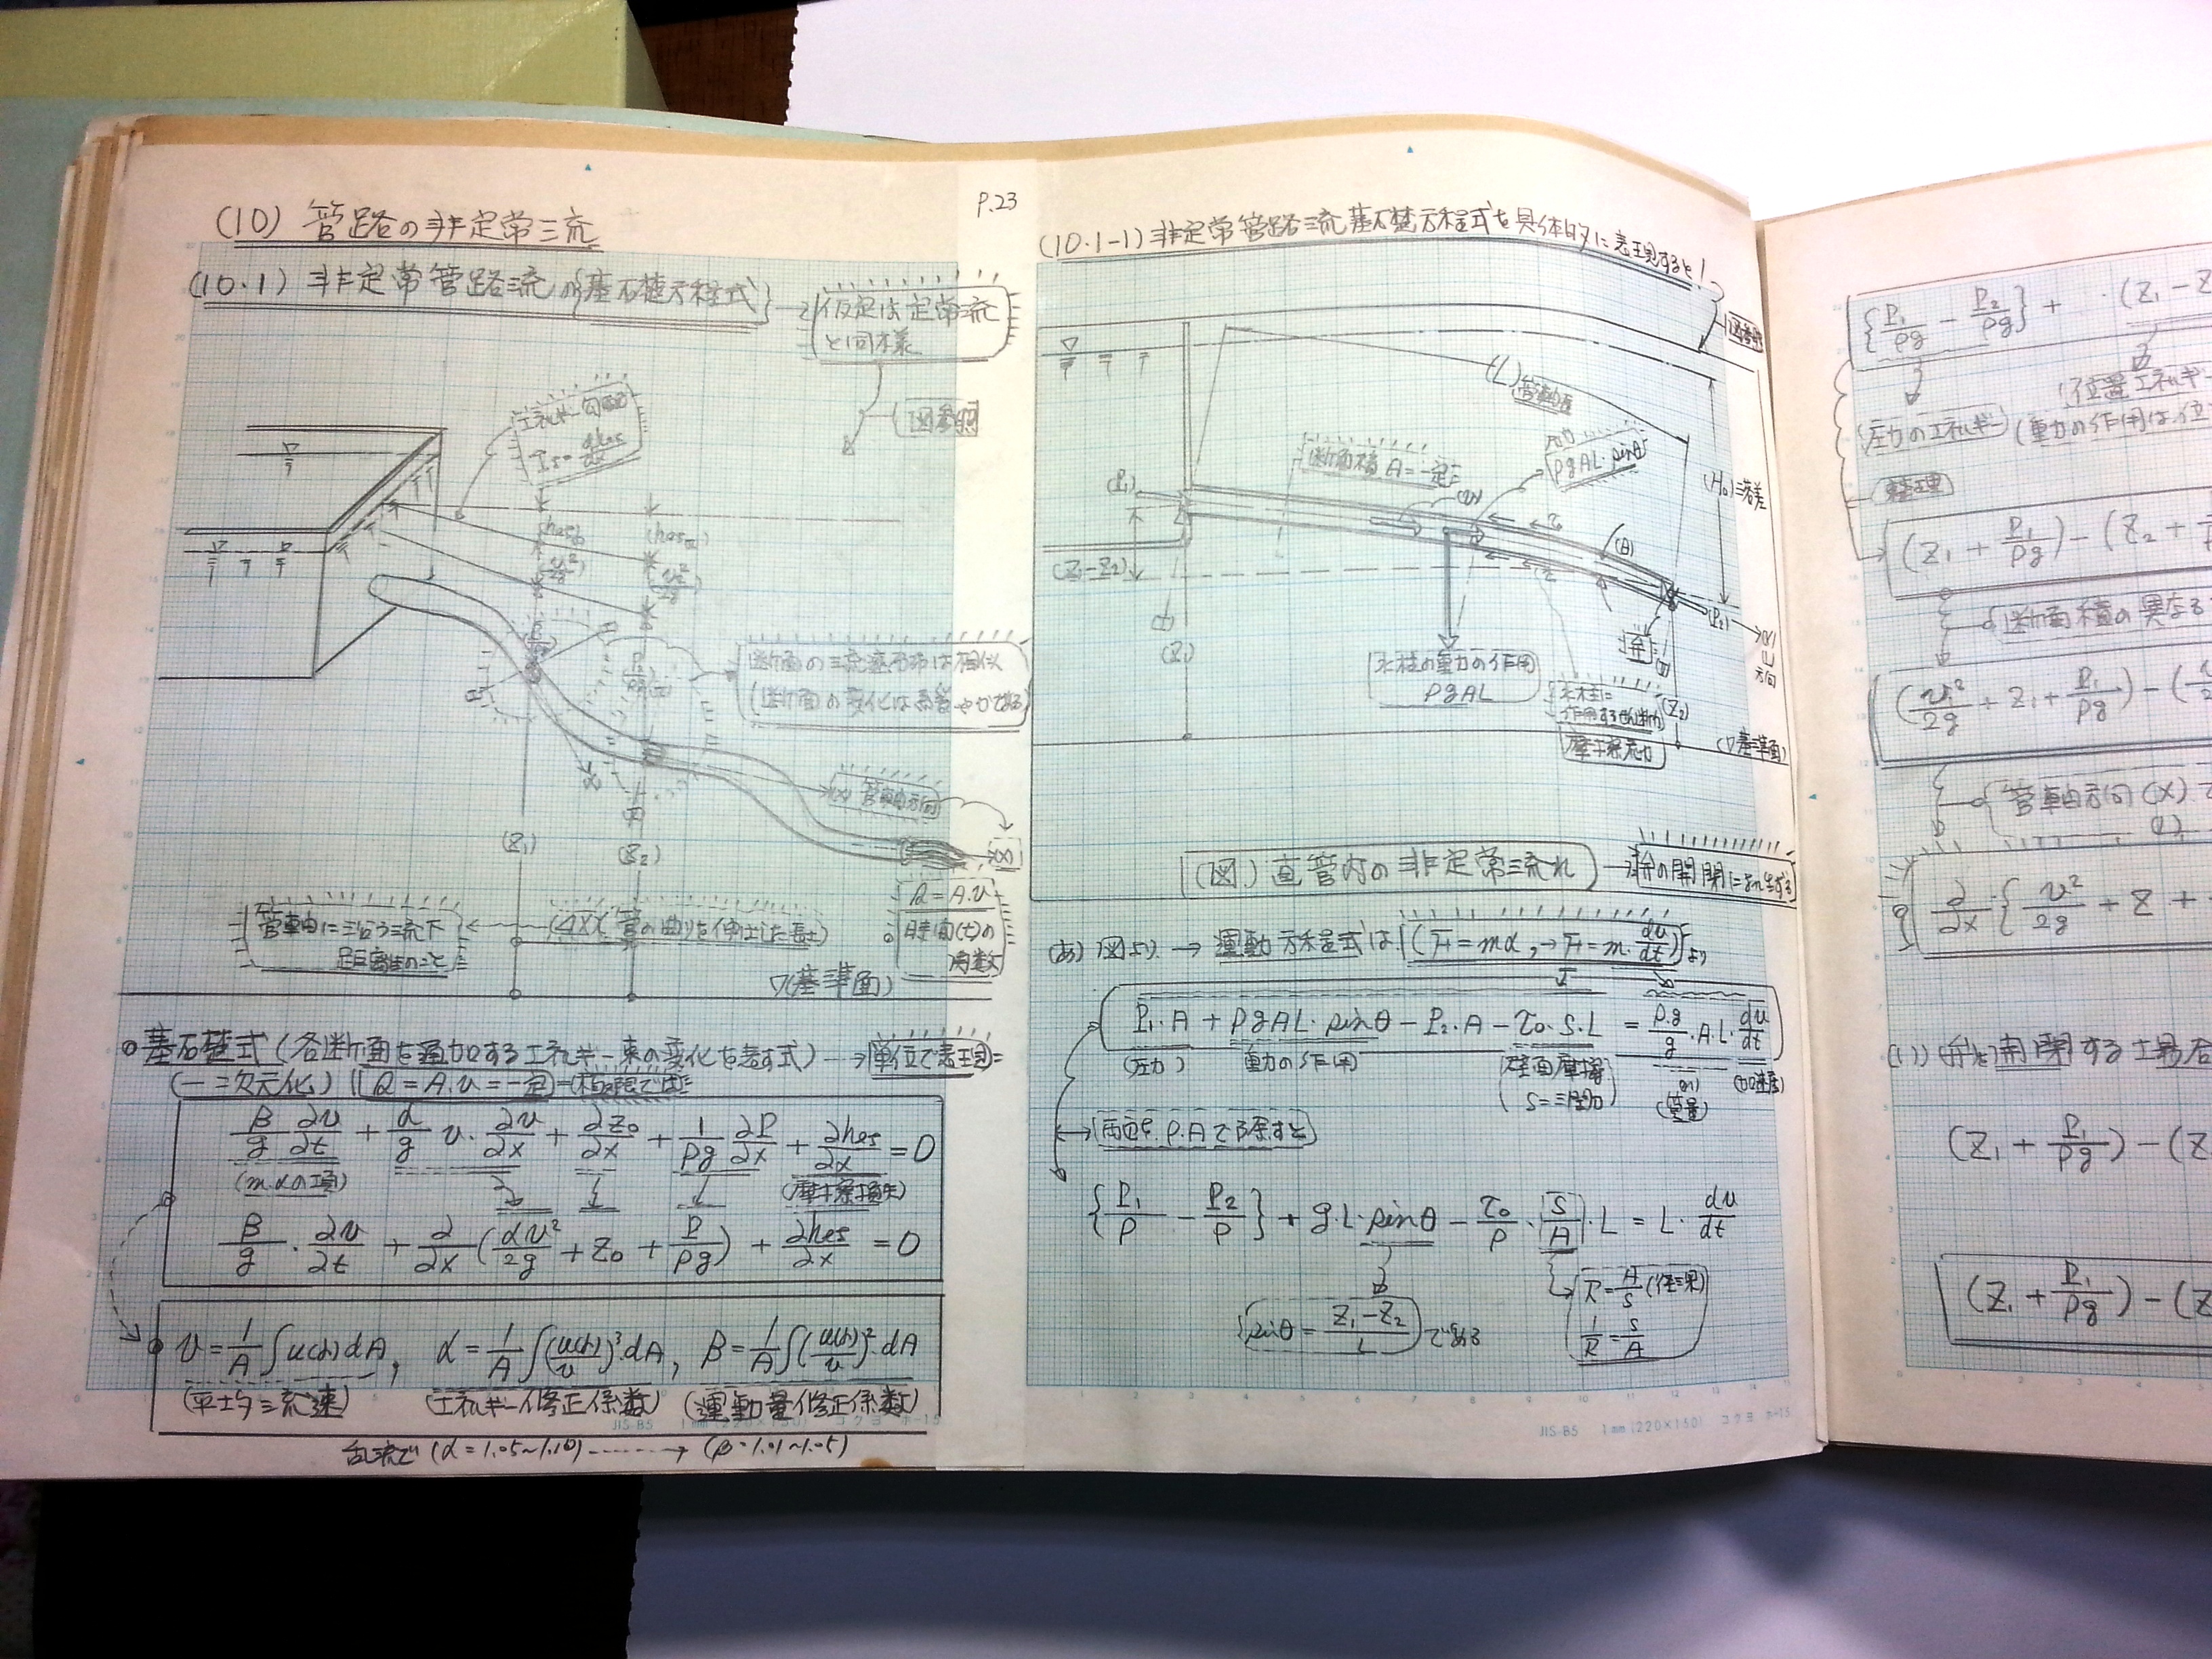 (10) 管路の非定常流
P.23
(10.1) 非定常管路流の{基礎方程式}
仮定は定常流
と同様
図参照
エネルギー勾配
断面の流速分布は相似
(断面の変化は緩やかである)
(x) 管軸方向
(x)
(Z₁)
(Z₂)
Q = A.v
時間(t)の
関数
管軸に沿う流下
距離のこと
(ΔX)(管の曲りを伸した長さ)
▽(基準面)
基礎式 (各断面を通加するエネルギー束の変化を表す式) → 単位で表現=
(一次元化) (Q = A.v = 一定)=(極限では)
β/g ∂v/∂t + α/g v・∂v/∂x + ∂Z₀/∂x + 1/ρg ∂P/∂x + ∂hes/∂x = 0
(m.αの項)
(摩擦損失)
β/g・∂v/∂t + ∂/∂x(αv²/2g + Z₀ + P/ρg) + ∂hes/∂x = 0
v = 1/A ∫u(λ)dA, α = 1/A ∫(u(λ)/v)³.dA, β = 1/A ∫(u(λ)/v)².dA
(平均流速) (エネルギー修正係数) (運動量修正係数)
JIS-B5 1mm(220×150) コクヨ ホ-15
乱流で (α = 1.05~1.10) → (β=1.01~1.05)
(10.1-1) 非定常管路流基礎方程式を具体的に表現すると!
図参照
(L)管軸長
断面積 A=一定
ρgAL・sinθ
(H₀)=落差
(P₁)
(v)
τ₀
(θ)
(Z₁-Z₂)
(P₂)
(x)
方向
弁
(Z₁)
水柱の重力の作用
ρgAL
水柱に
作用するせん断力
摩擦応力
(Z₂)
(▽基準面)
(図.) 直管内の非定常流れ → 弁の開閉により生ずる
(あ) 図より → 運動方程式は (F = mα, → F = m.du/dt) より
P₁.A + ρgAL・sinθ − P₂.A − τ₀.S.L = ρ.g/g.A.L.du/dt
(圧力) 重力の作用 (壁面摩擦 S=周辺) (m)(質量) (加速度)
両辺をρ.Aで除すと
{P₁/ρ − P₂/ρ} + g.L.sinθ − τ₀/ρ・(S/A).L = L・dv/dt
sinθ = Z₁−Z₂/L である
R = A/S (径深)
1/R = S/A
JIS-B5 1mm(220×150) コクヨ ホ-15
{P₁/ρg − P₂/ρg} + ・(Z₁ − Z
圧力のエネルギー
位置エネルギー
(重力の作用は位
整理
(Z₁ + P₁/ρg) − (Z₂ +
断面積の異なる
(v²/2g + Z₁ + P₁/ρg) − (
管軸方向(X)で
(L)
∂/∂x {v²/2g + Z +
(1) (弁を)開閉する場合
(Z₁ + P₁/ρg) − (Z
(Z₁ + P₁/ρg) − (Z